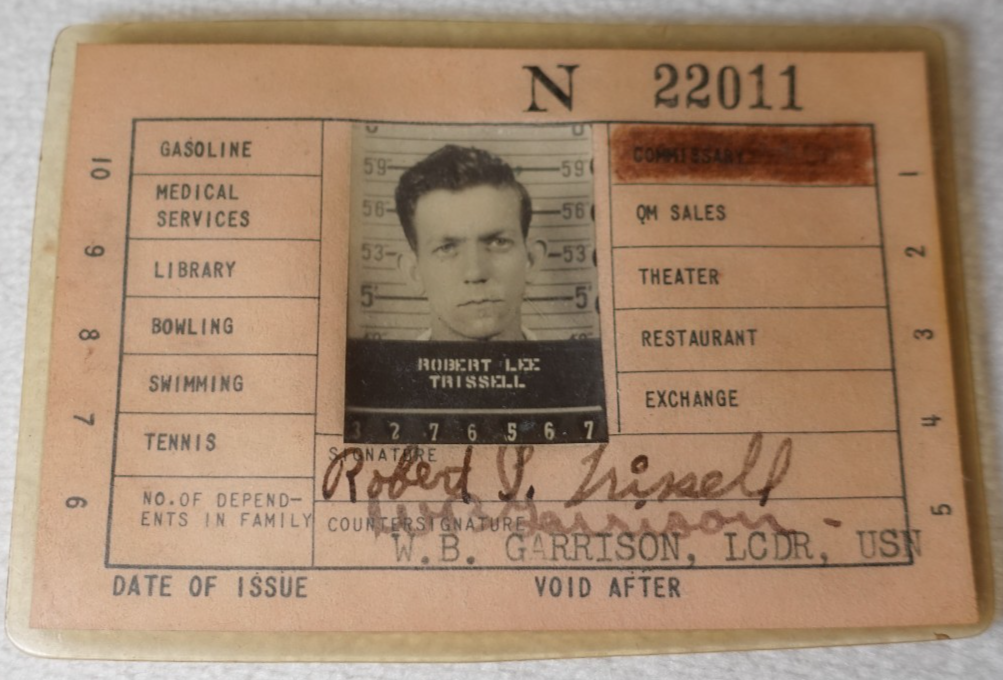 N 22011
10
GASOLINE
MEDICAL
SERVICES
9
LIBRARY
8
BOWLING
SWIMMING
7
TENNIS
6
NO. OF DEPEND-
ENTS IN FAMILY
59 59
56 56
53 53
5' 5'
ROBERT LEE
TRISSELL
3 2 7 6 5 6 7
COMMISSARY
1
QM SALES
2
THEATER
3
RESTAURANT
EXCHANGE
4
5
SIGNATURE
Robert L. Trissell
COUNTERSIGNATURE
WB Garrison
W.B. GARRISON, LCDR, USN
DATE OF ISSUE VOID AFTER